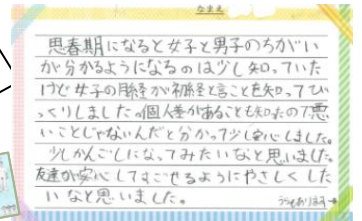 なまえ
思春期になると女子と男子のちがい
が分かるようになるのは少し知っていた
けど女子の月経が初経と言ことを知ってび
っくりしました。個人差があることも知ったので悪
いことじゃないんだと分かって少し安心しました。
少しかんごしになってみたいなと思いました。
友達が安心してすごせるようにやさしくした
いなと思いました。
うらもあります→